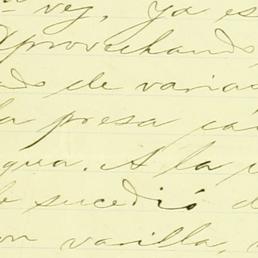 vez, ya es
Aprovechando
de varia
la presa
gua. A la
le sucedió d
on varilla,